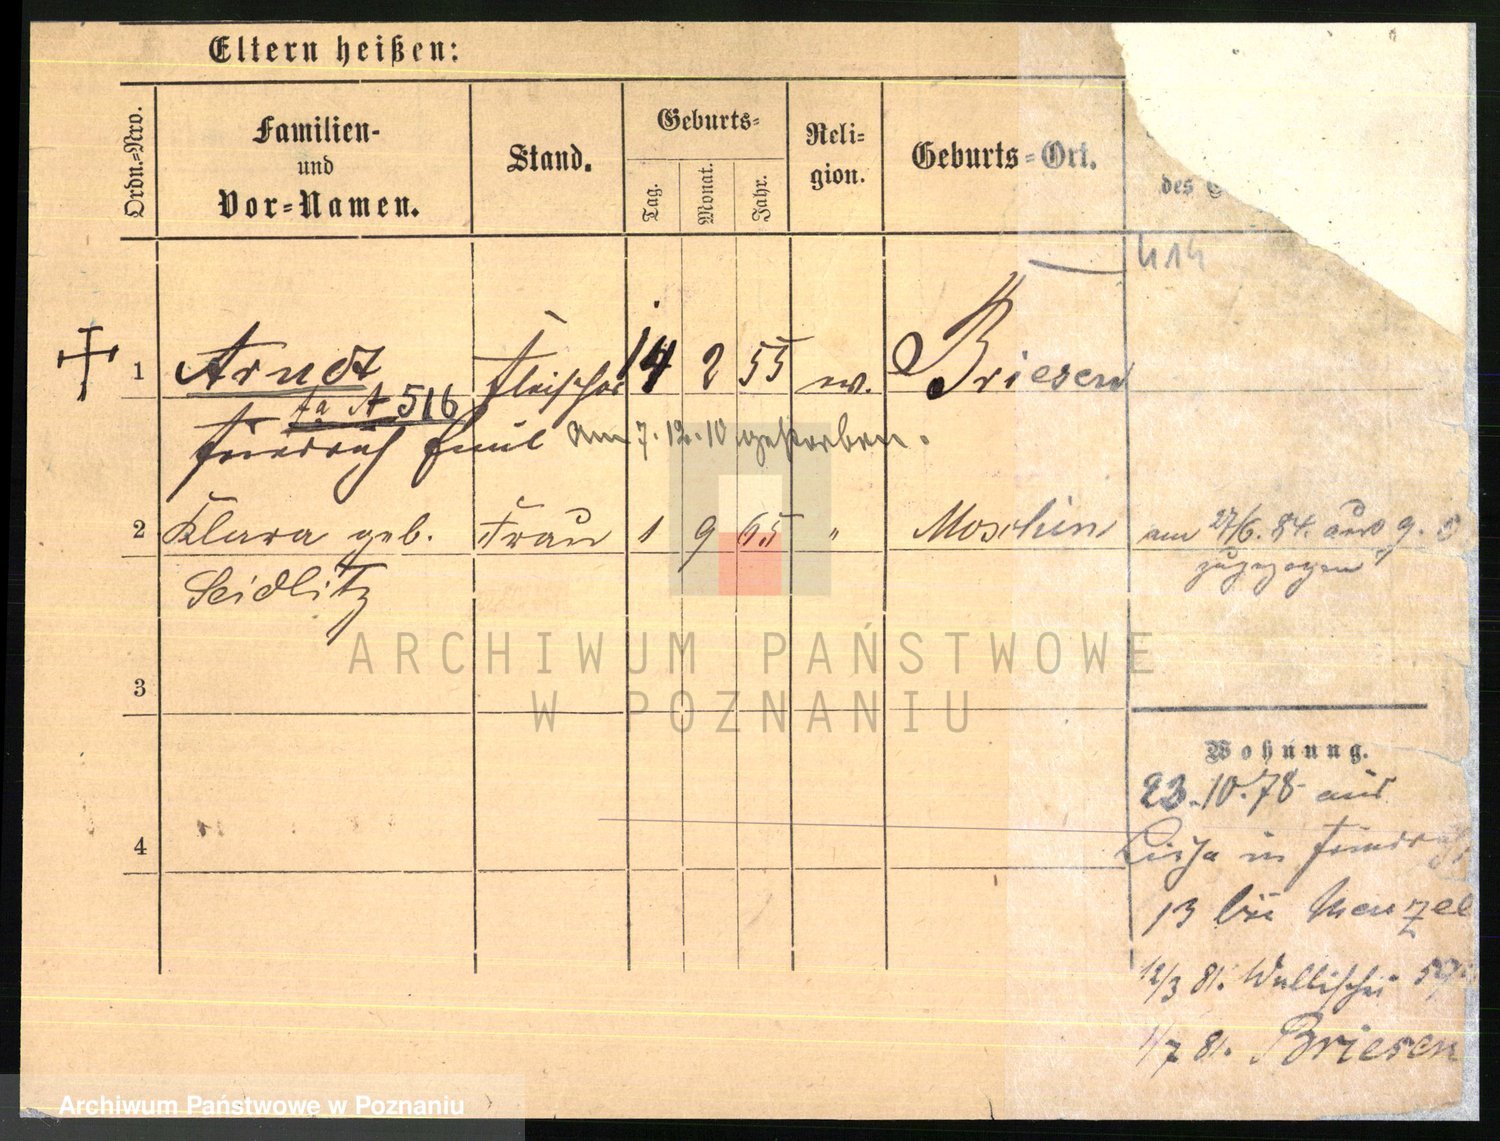 Eltern heißen:
Ordn.=Nro.
Familien-
und
Vor=Namen.
Stand.
Geburts=
Tag.
Monat.
Jahr.
Reli=
gion.
Geburts=Ort.
des
414
1 Arndt Fleischer 14 2 55 ev. Briesen
A 516
Friedrich Emil am 7.12.10 gestorben.
2 Klara geb. Frau 1 9 65 " Moschin am 27/6. 84. aus
Seidlitz
zugezogen
3
4
Wohnung.
23.10.78 aus
Lissa in
13 bei Menzel
12/3 81. Wallischei
1/7 81. Briesen
ARCHIWUM PAŃSTWOWE
W POZNANIU
Archiwum Państwowe w Poznaniu